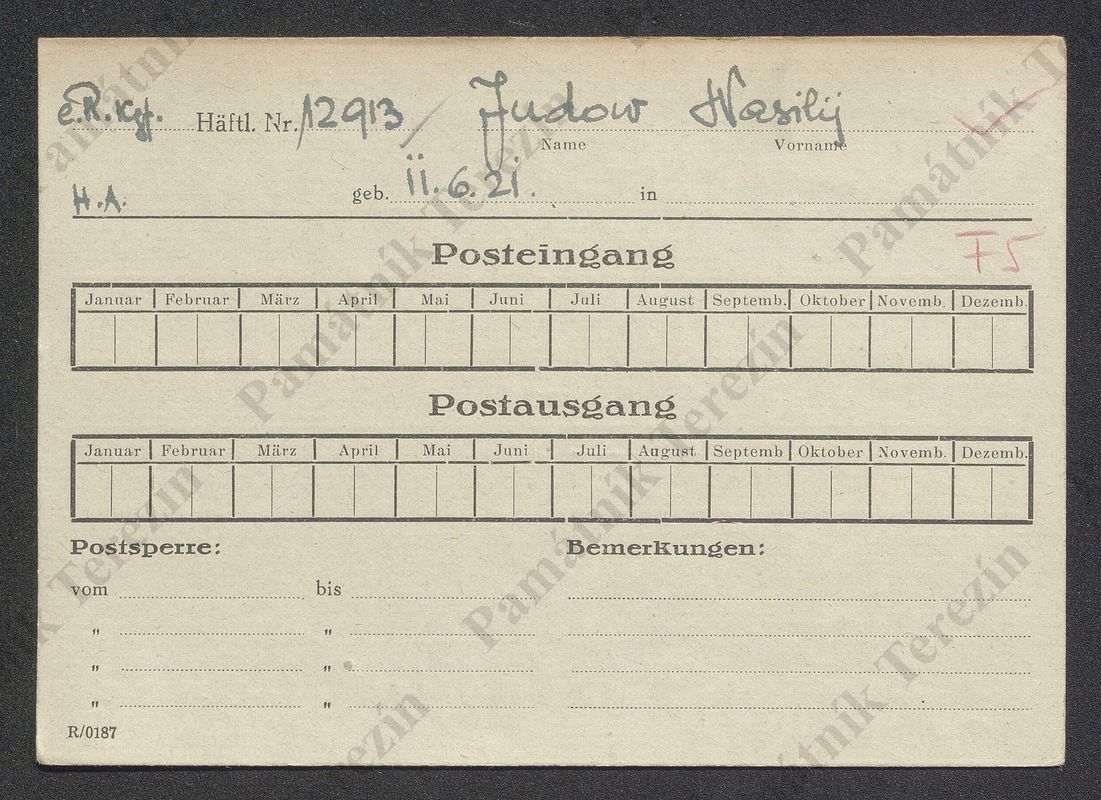 e.R.Kgf. Häftl. Nr. 12913 Judow Wasilij
Name Vorname
H.A. geb. 11.6.21. in
F5
Posteingang
Januar Februar März April Mai Juni Juli August Septemb. Oktober Novemb. Dezemb.
Postausgang
Januar Februar März April Mai Juni Juli August Septemb Oktober Novemb. Dezemb.
Postsperre: Bemerkungen:
vom bis
„ „
„ „
„ „
R/0187
Památník Terezín